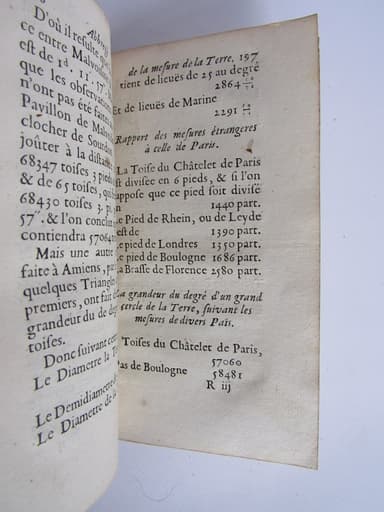 Abbregé
D'où il resulte que
ce entre Malvoisine
est de 1d. 11'. 57".
que les observations
n'ont pas été faites
Pavillon de Malvoisine
clocher de Sourdon
joûter à la distance
68347 toises 3 pieds
& de 65 toises, qui
68430 toises 3. p
57". & l'on conclud
contiendra 57064
Mais une autre
faite à Amiens, par
quelques Triangles
premiers, ont fait
grandeur du de degré
toises.
Donc suivant cette
Le Diametre de la T
Le Demidiametre de
Le Diametre de la
de la mesure de la Terre. 197
tient de lieuës de 25 au degré
2864
Et de lieuës de Marine
2291
Rapport des mesures étrangeres
à celle de Paris.
La Toise du Châtelet de Paris
est divisée en 6 pieds, & si l'on
suppose que ce pied soit divisé
en 1440 part.
Le Pied de Rhein, ou de Leyde
est de 1390 part.
Le pied de Londres 1350 part.
Le pied de Boulogne 1686 part.
La Brasse de Florence 2580 part.
La grandeur du degré d'un grand
cercle de la Terre, suivant les
mesures de divers Païs.
Toises du Châtelet de Paris,
57060
Pas de Boulogne 58481
R iij